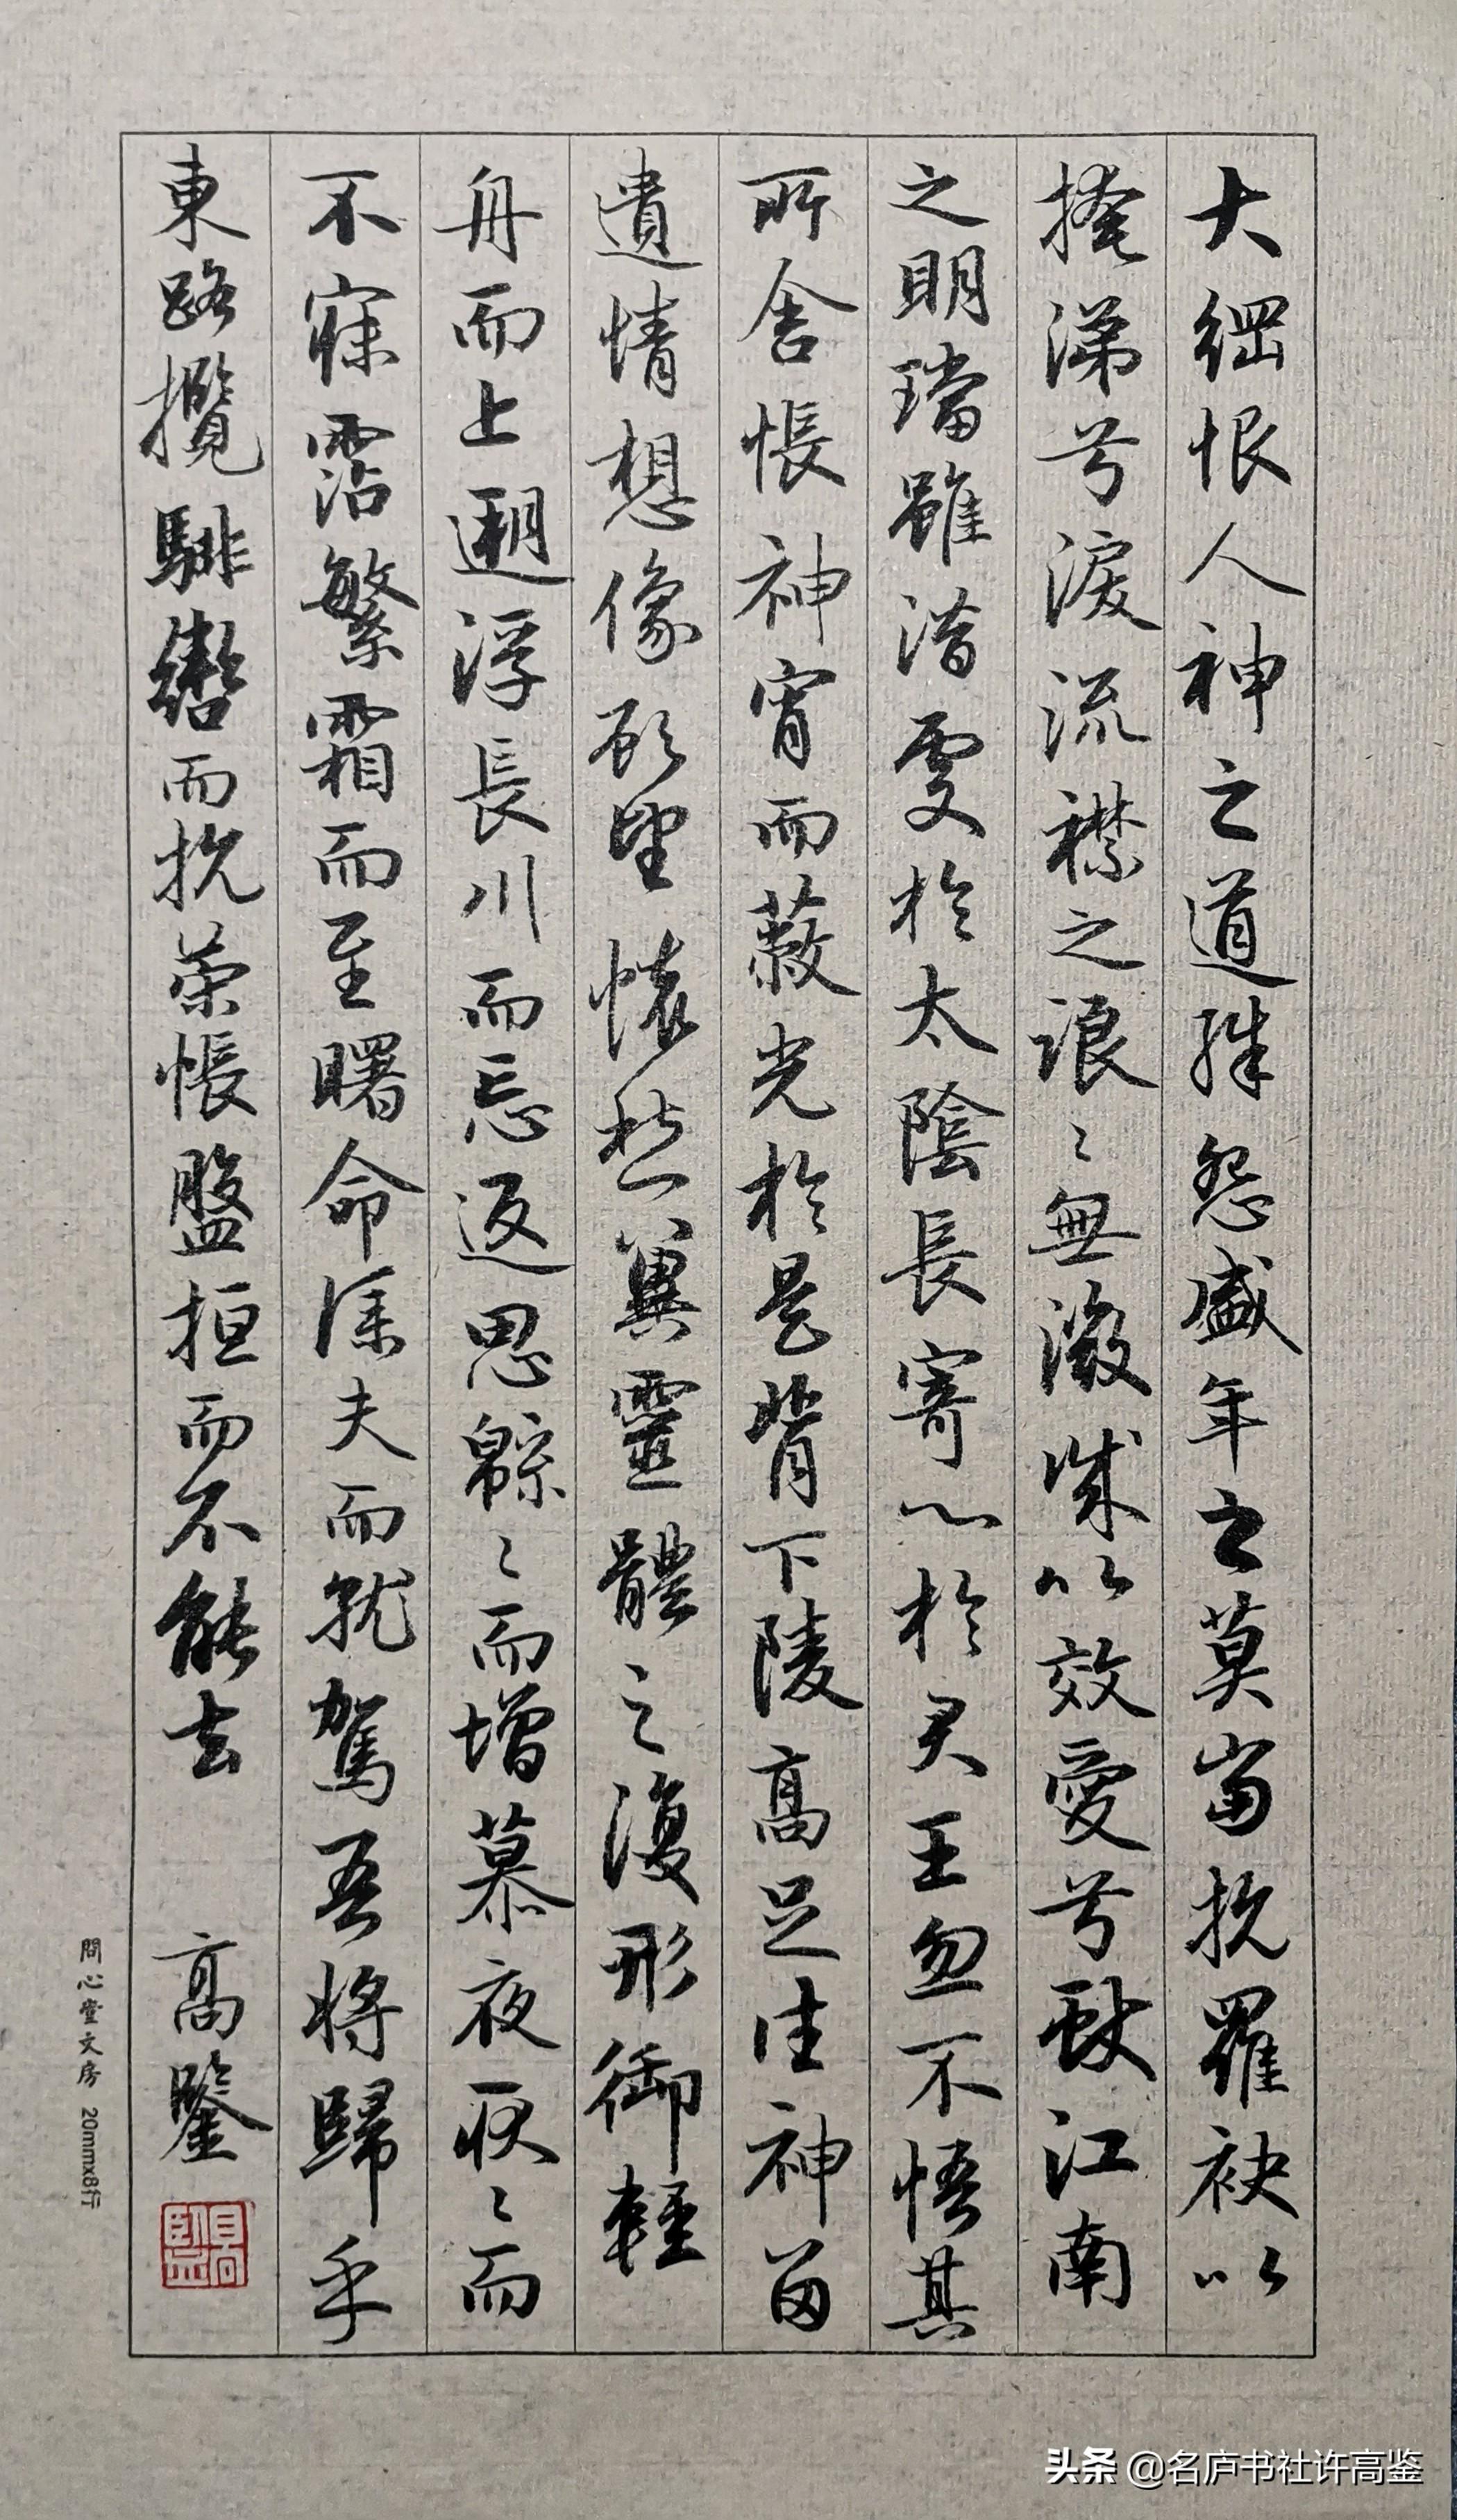 大綱恨人神之道殊怨盛年之莫當抗羅袂以
掩涕兮淚流襟之浪々無微誠以效愛兮獻江南
之明璫雖潛處於太陰長寄心於君王忽不悟其
所舍悵神宵而蔽光於是背下陵高足往神留
遺情想像顧望懷愁冀靈體之復形御輕
舟而上遡浮長川而忘返思緜々而增慕夜耿々而
不寐霑繁霜而至曙命僕夫而就駕吾將歸乎
東路攬騑轡而抗策悵盤桓而不能去
高鑒
高鑒
問心堂文房 20mmx8行
头条 @名庐书社许高鉴